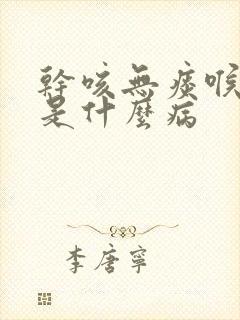 幹咳無痰喉
是什麼病
李唐寧